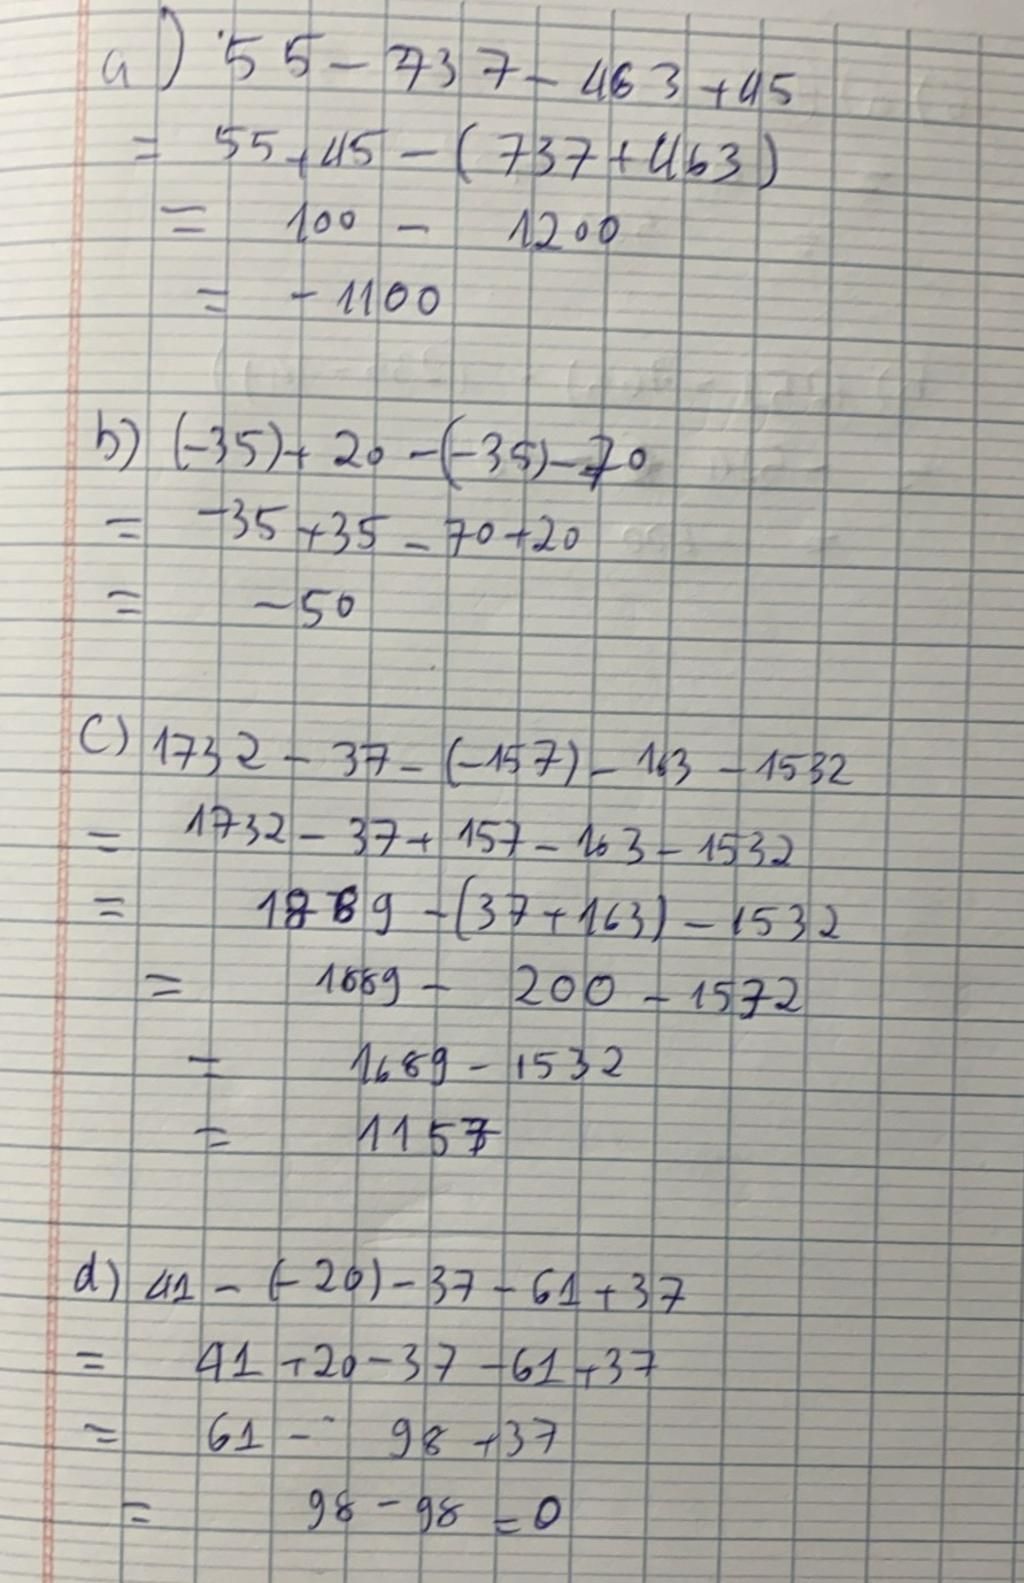 a) 55 - 737 - 463 + 45
= 55 + 45 - (737 + 463)
= 100 - 1200
= -1100
b) (-35) + 20 - (-35) - 70
= -35 + 35 - 70 + 20
= -50
c) 1732 - 37 - (-157) - 163 - 1532
= 1732 - 37 + 157 - 163 - 1532
= 1889 - (37 + 163) - 1532
= 1889 - 200 - 1532
= 1689 - 1532
= 1157
d) 41 - (-20) - 37 - 61 + 37
= 41 + 20 - 37 - 61 + 37
= 61 - 98 + 37
= 98 - 98 = 0